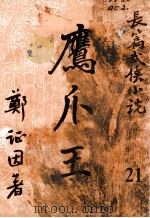 長篇武俠小說
鷹爪王
鄭证因著
21